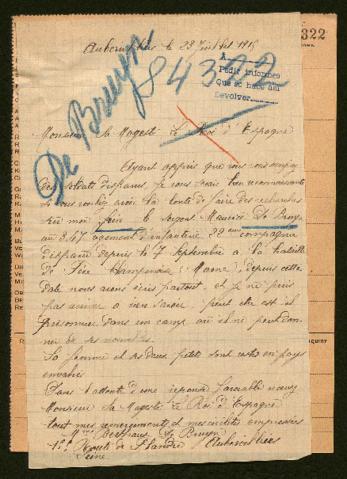 Aubervilliers le 23 Juillet 1915
De Bruyn
84322
322
A
Pedir informes
Que se hace aquí
Devolver
Monsieur Sa Majesté Le Roi d'Espagne
Ayant appris que vous vous occupez
des Soldats disparus, je vous serais bien reconnaissante
si vous vouliez avoir la bonté de faire des recherches
sur mon frère le sergent Maurice De Bruyn
au 3.67 régiment d'infanterie 22 eme compagnie
disparu depuis le 7 Septembre a la bataille
de Fère Champenoise (Marne), depuis cette
date nous avons écris partout, et je ne puis
pas arriver a rien savoir. peut etre est il
prisonnier dans un camp ou il ne peut don-
ner de ses nouvelles.
Sa femme et ses deux petits sont restés en pays
envahis
Dans l'attente d'une réponse favorable recevez
Monsieur Sa Majesté Le Roi d'Espagne
tout mes remerciements et mes civilités empressées
Mme De Bruyn
Route de Flandre Aubervilliers
Seine